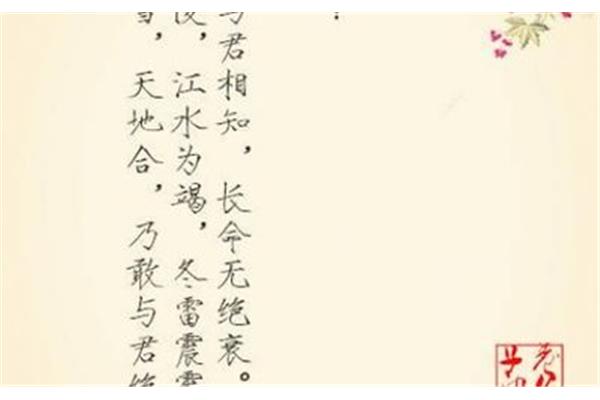 与君相知，长命无绝衰。
，江水为竭，冬雷震震
，天地合，乃敢与君绝